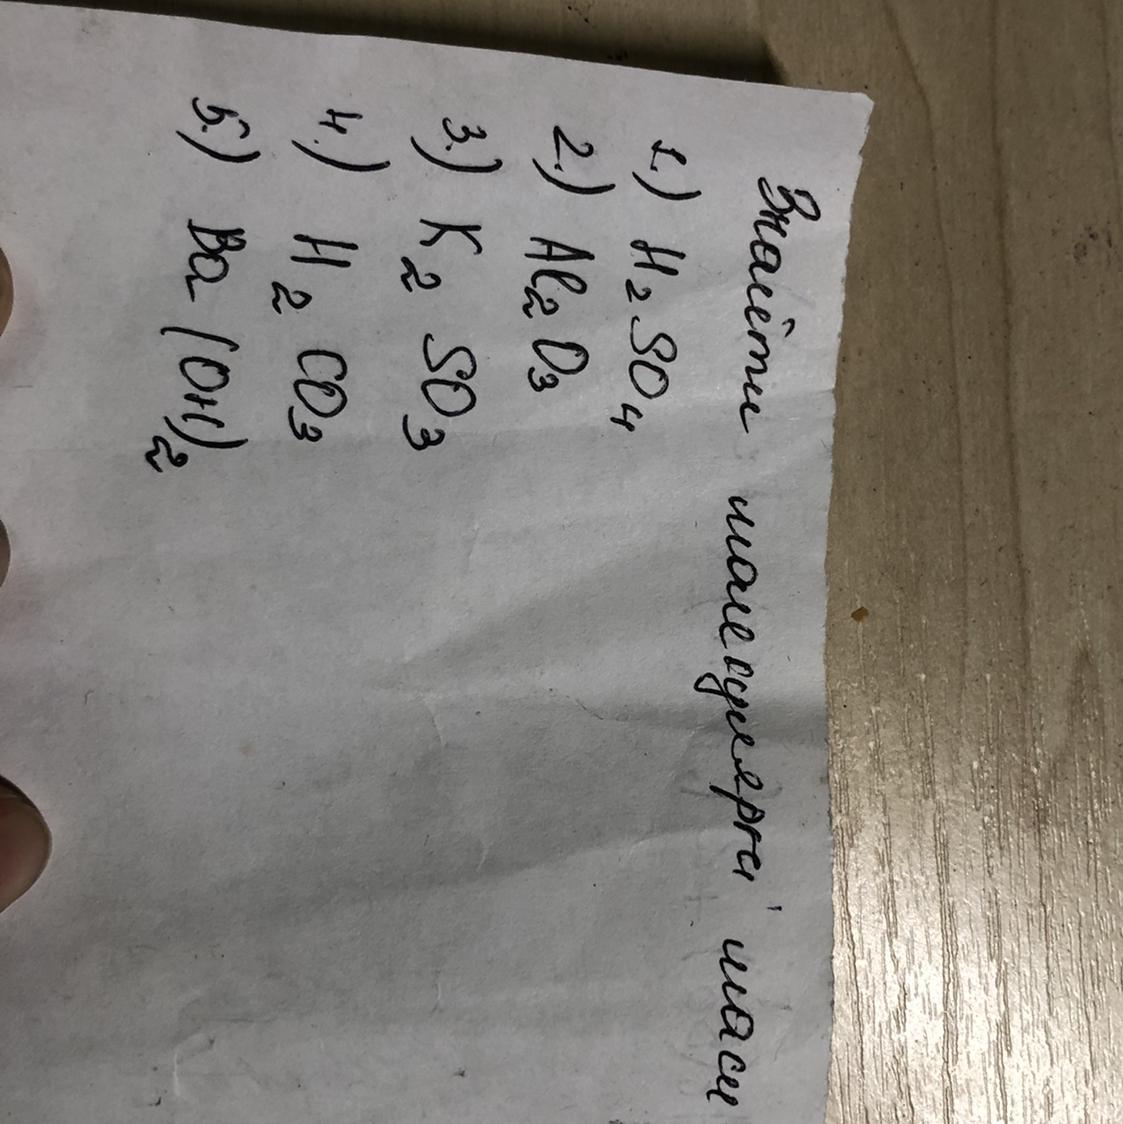 Знайти молекулярні маси
1.) H₂SO₄
2.) Al₂O₃
3.) K₂SO₃
4.) H₂CO₃
5.) Ba(OH)₂